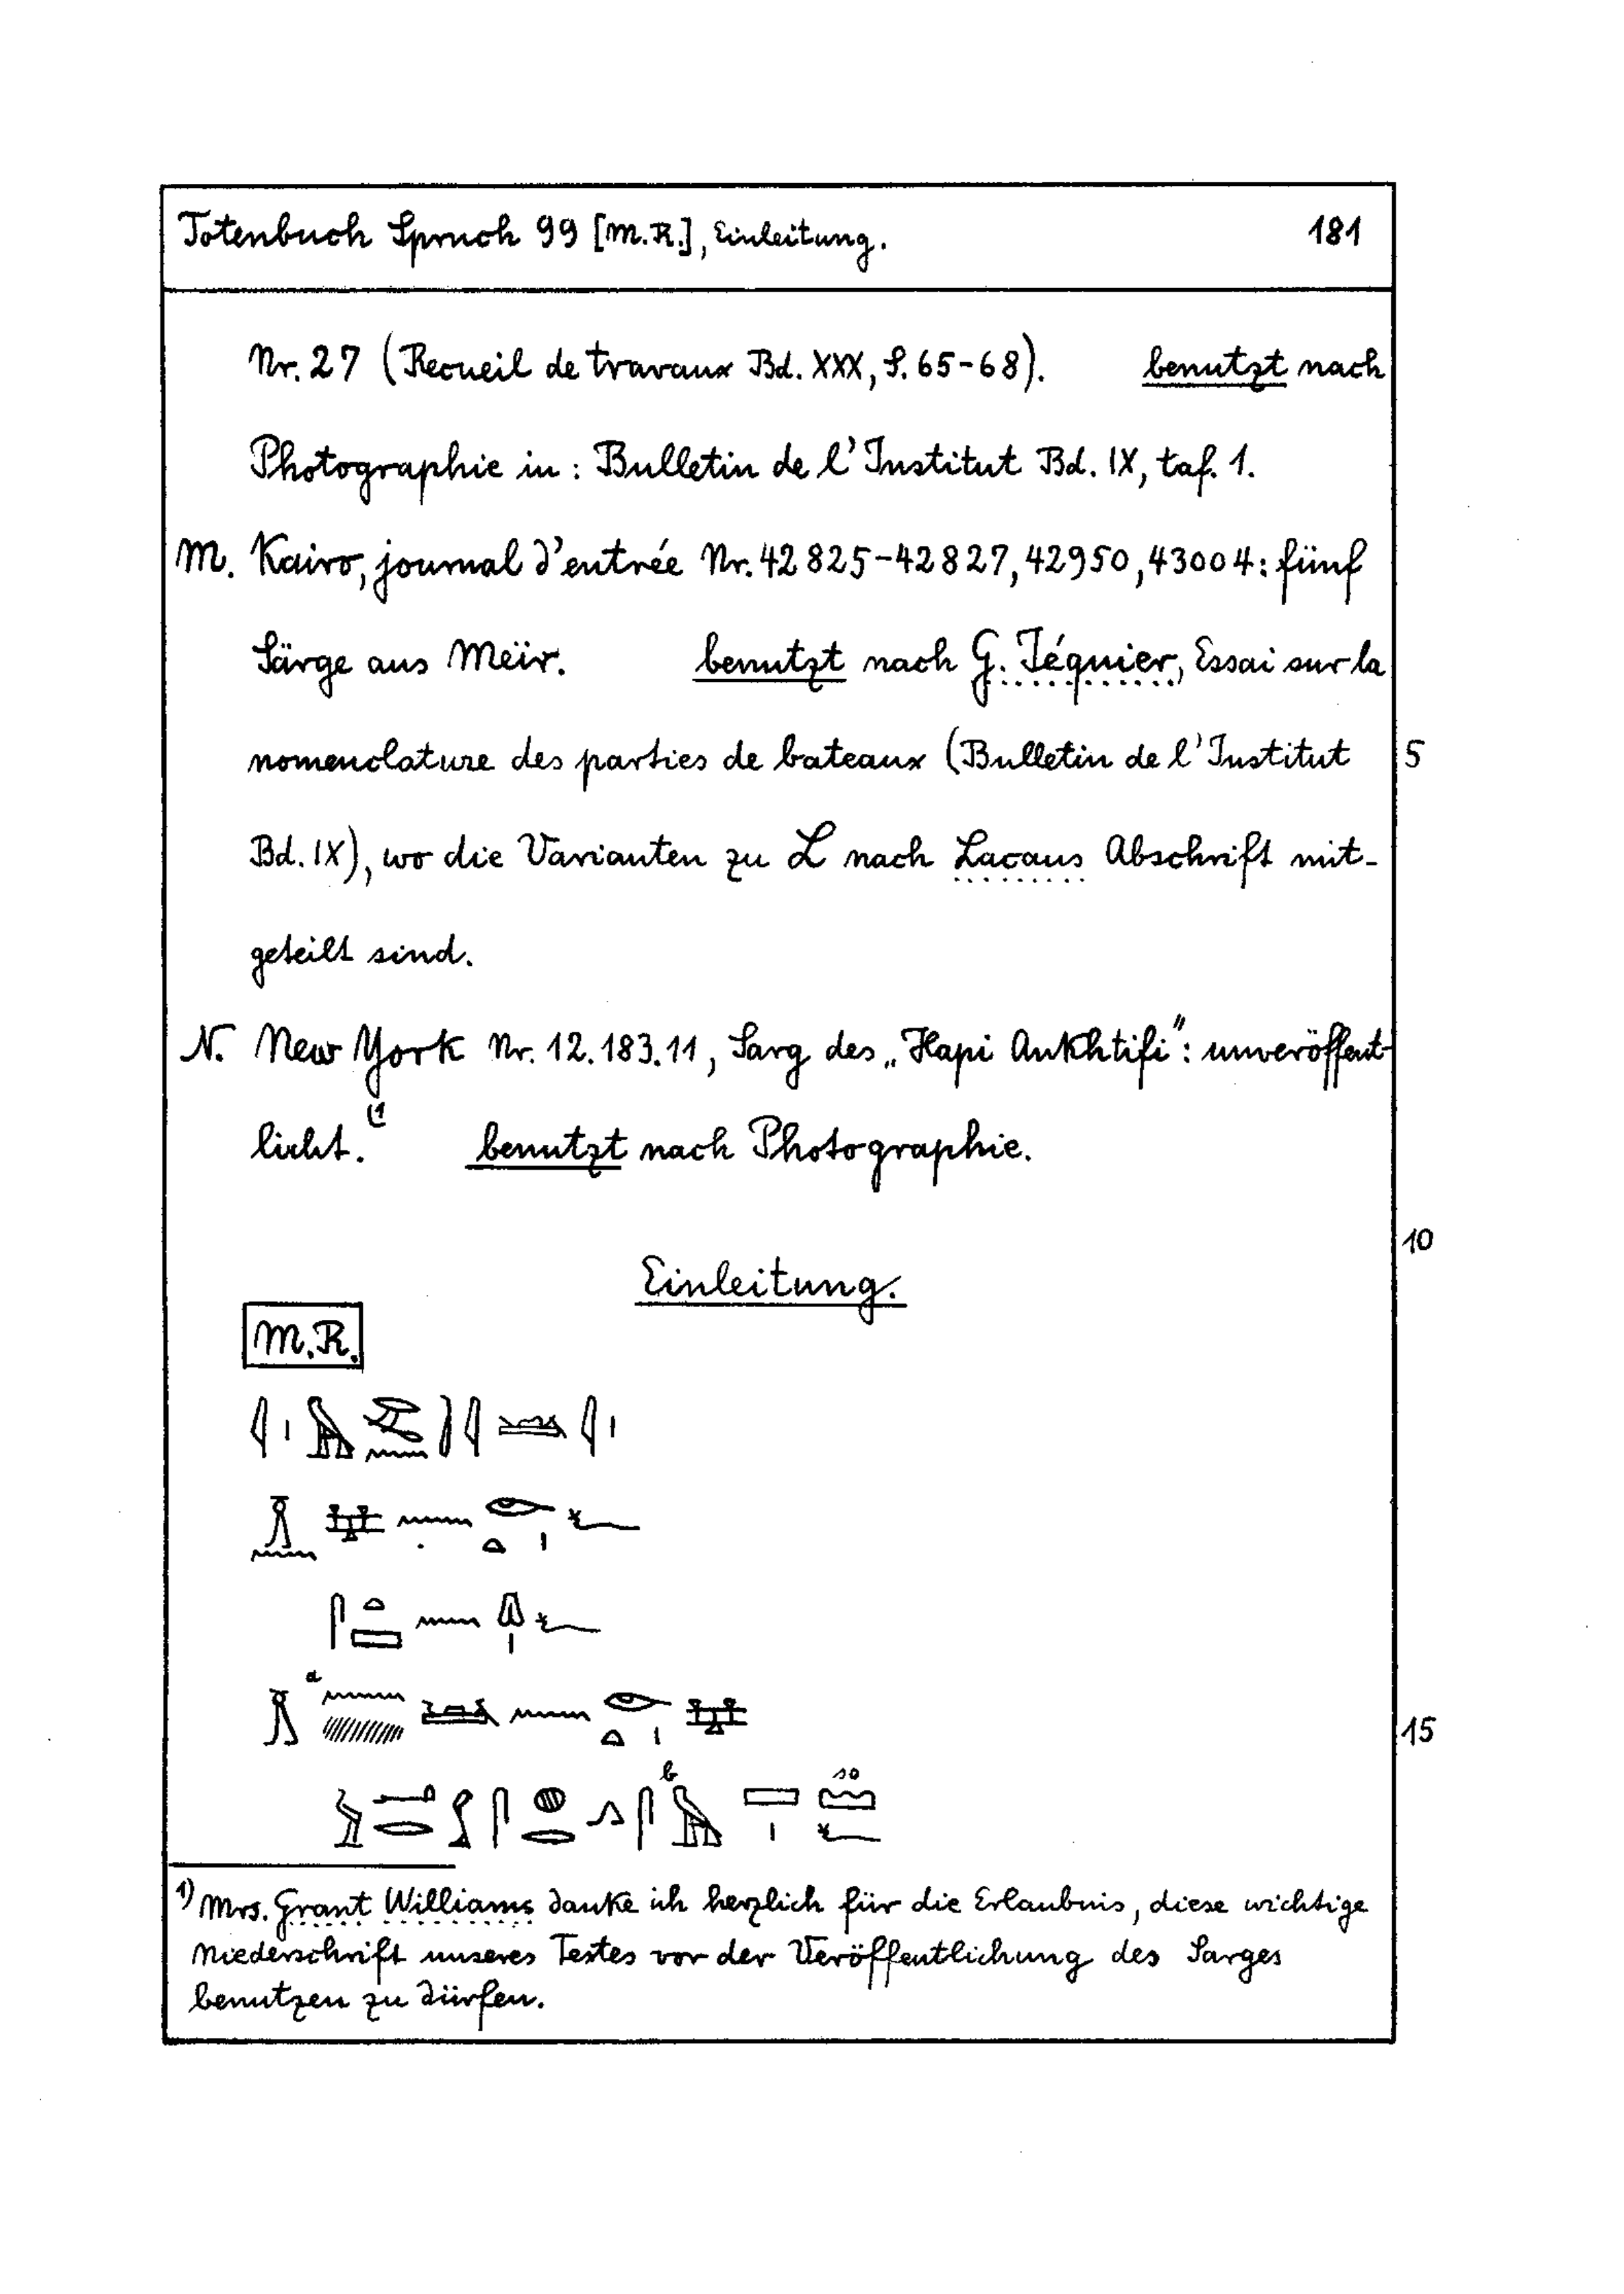 Totenbuch Spruch 99 [M.R.], Einleitung. 181
Nr. 27 (Recueil de travaux Bd. XXX, S. 65-68). benutzt nach
Photographie in: Bulletin de l'Institut Bd. IX, taf. 1.
M. Kairo, journal d'entrée Nr. 42825-42827, 42950, 43004: fünf
Särge aus Meïr. benutzt nach G. Jéquier, Essai sur la
nomenclature des parties de bateaux (Bulletin de l'Institut 5
Bd. IX), wo die Varianten zu L nach Lacaus Abschrift mit-
geteilt sind.
N. New York Nr. 12.183.11, Sarg des „Hapi Ankhtifi": unveröffent-
licht. (1 benutzt nach Photographie.
10
Einleitung.
M.R.
a
15
b
1) Mrs. Grant Williams danke ich herzlich für die Erlaubnis, diese wichtige
Niederschrift unseres Textes vor der Veröffentlichung des Sarges
benutzen zu dürfen.